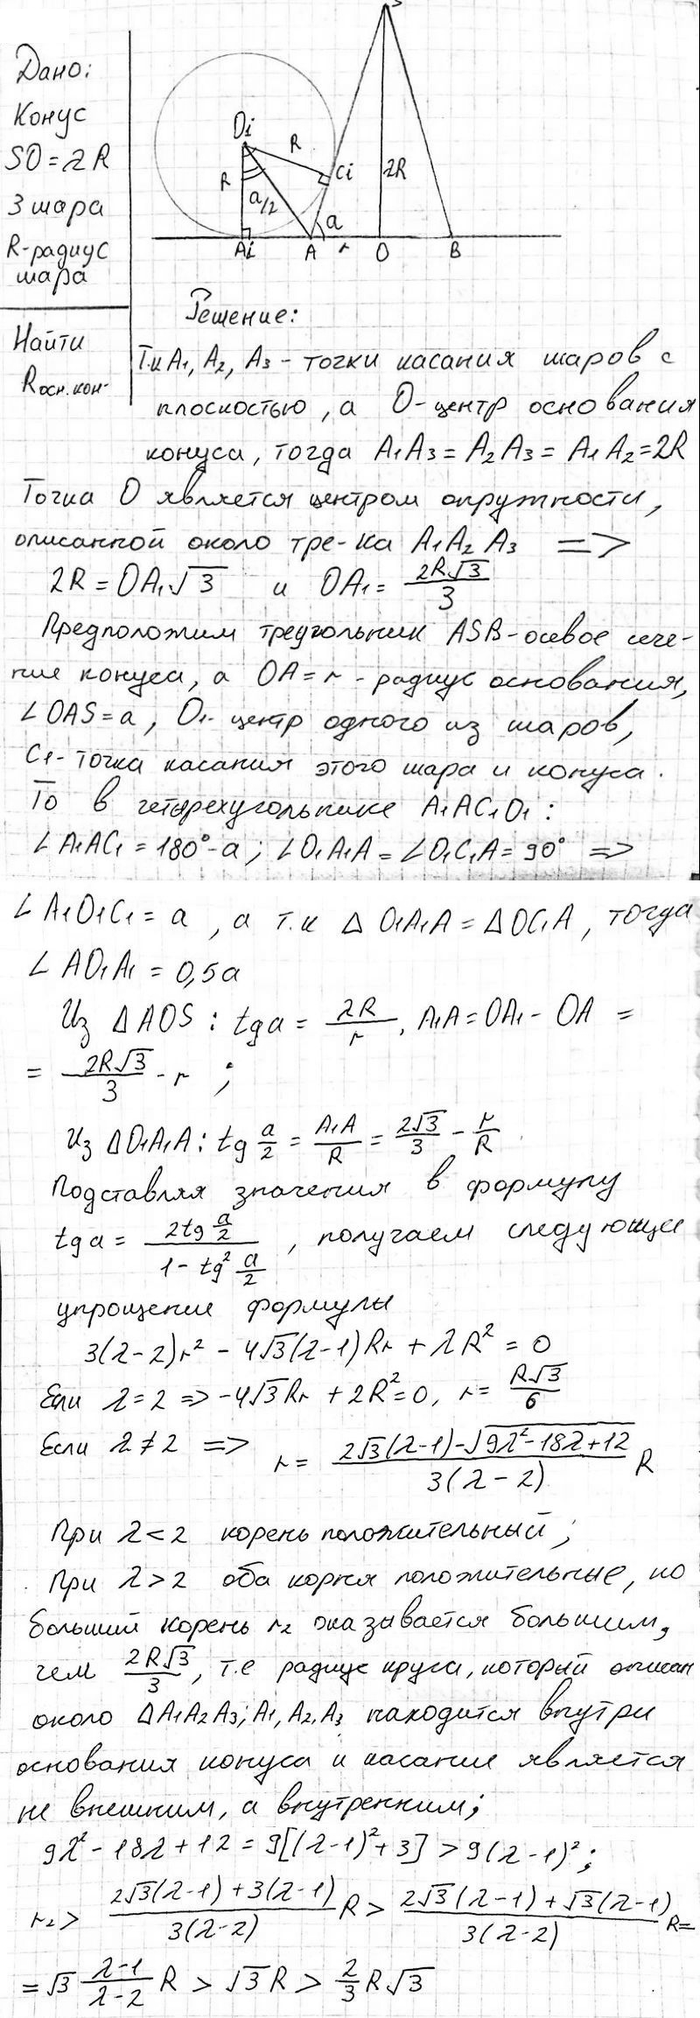 Дано:
Конус
SO = λR
3 шара
R-радиус
шара
Найти
Rосн.кон.
S
Oi
R
R
a/2
Ci
λR
a
Ai
A
r
O
B
Решение:
Т.к A₁, A₂, A₃ - точки касания шаров с
плоскостью, а O-центр основания
конуса, тогда A₁A₃ = A₂A₃ = A₁A₂ = 2R
Точка O является центром окружности,
описанной около тре-ка A₁A₂A₃ =>
2R = OA₁√3 и OA₁ = 2R√3/3
Предположим треугольник ASB-осевое сече-
ние конуса, а OA = r - радиус основания,
∠OAS = a, O₁- центр одного из шаров,
C₁- точка касания этого шара и конуса.
То в четырехугольнике A₁AC₁O₁:
∠A₁AC₁ = 180°-a; ∠O₁A₁A = ∠O₁C₁A = 90° =>
∠A₁O₁C₁ = a, а т.к ΔO₁A₁A = ΔOC₁A, тогда
∠AO₁A₁ = 0,5a
Из ΔAOS: tg a = λR/r, A₁A = OA₁ - OA =
= 2R√3/3 - r;
Из ΔO₁A₁A: tg a/2 = A₁A/R = 2√3/3 - r/R
Подставляя значения в формулу
tg a = 2tg a/2 / (1 - tg² a/2), получаем следующее
упрощение формулы
3(λ-2)r² - 4√3(λ-1)Rr + λR² = 0
Если λ = 2 => -4√3Rr + 2R² = 0, r = R√3/6
Если λ ≠ 2 => r = (2√3(λ-1) - √(9λ²-18λ+12))/(3(λ-2)) R
При λ < 2 корень положительный;
При λ > 2 оба корня положительные, но
больший корень r₂ оказывается большим,
чем 2R√3/3, т.е радиус круга, который описан
около ΔA₁A₂A₃; A₁, A₂, A₃ находится внутри
основания конуса и касание является
не внешним, а внутренним;
9λ² - 18λ + 12 = 9[(λ-1)² + 3] > 9(λ-1)²;
r₂ > (2√3(λ-1) + 3(λ-1))/(3(λ-2)) R > (2√3(λ-1) + √3(λ-1))/(3(λ-2)) R =
= √3 (λ-1)/(λ-2) R > √3R > 2/3 R√3